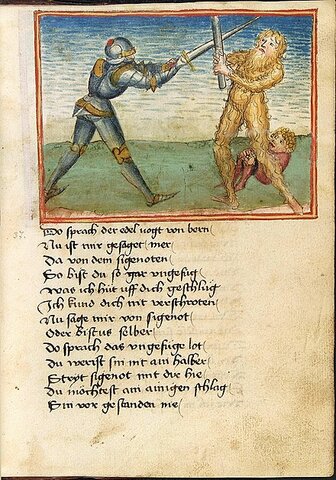 37.
Do sprach der edel vogt von bern
Nu ist mir gesaget mer
Da von dem sigenoten
So bist du so gar vngefug
Was ich hüt vff dich geschlug
Ich kund dich nit verschroten
Nu sage mir von sigenot
Oder bistus selber
Do sprach das vngefüge lot
Du werist sin nit ain halber
Stryt sigenot mit dir hie
Du möchtest am ainigen schlag
Sin vor gestanden nie